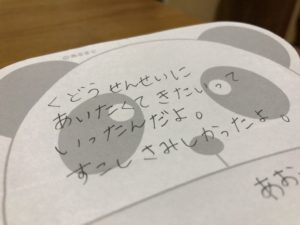 くどうせんせいに
あいたくてきたいって
いったんだよ。
すこしさみしかったよ。
あお